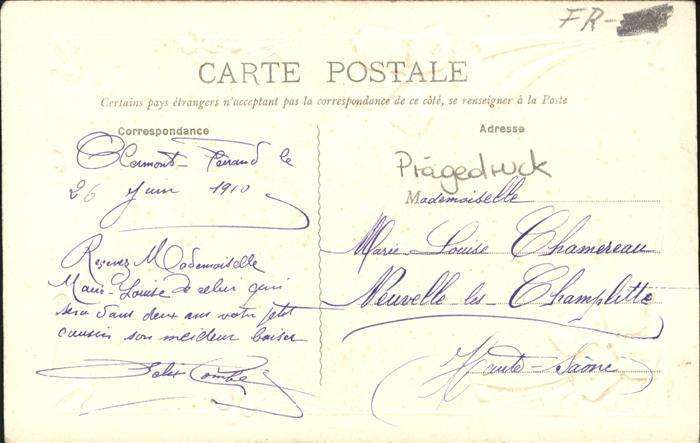 FR-
CARTE POSTALE
Certains pays étrangers n'acceptant pas la correspondance de ce côté, se renseigner à la Poste
Correspondance
Clermont-Ferrand le
26 Juin 1910
Recevez Mademoiselle
Marie-Louise de celui qui
sera dans deux ans votre petit
cousin son meilleur baiser
Combe
Adresse
Prägedruck
Mademoiselle
Marie-Louise Chamereau
Neuvelle les Champlitte
Haute-Saône